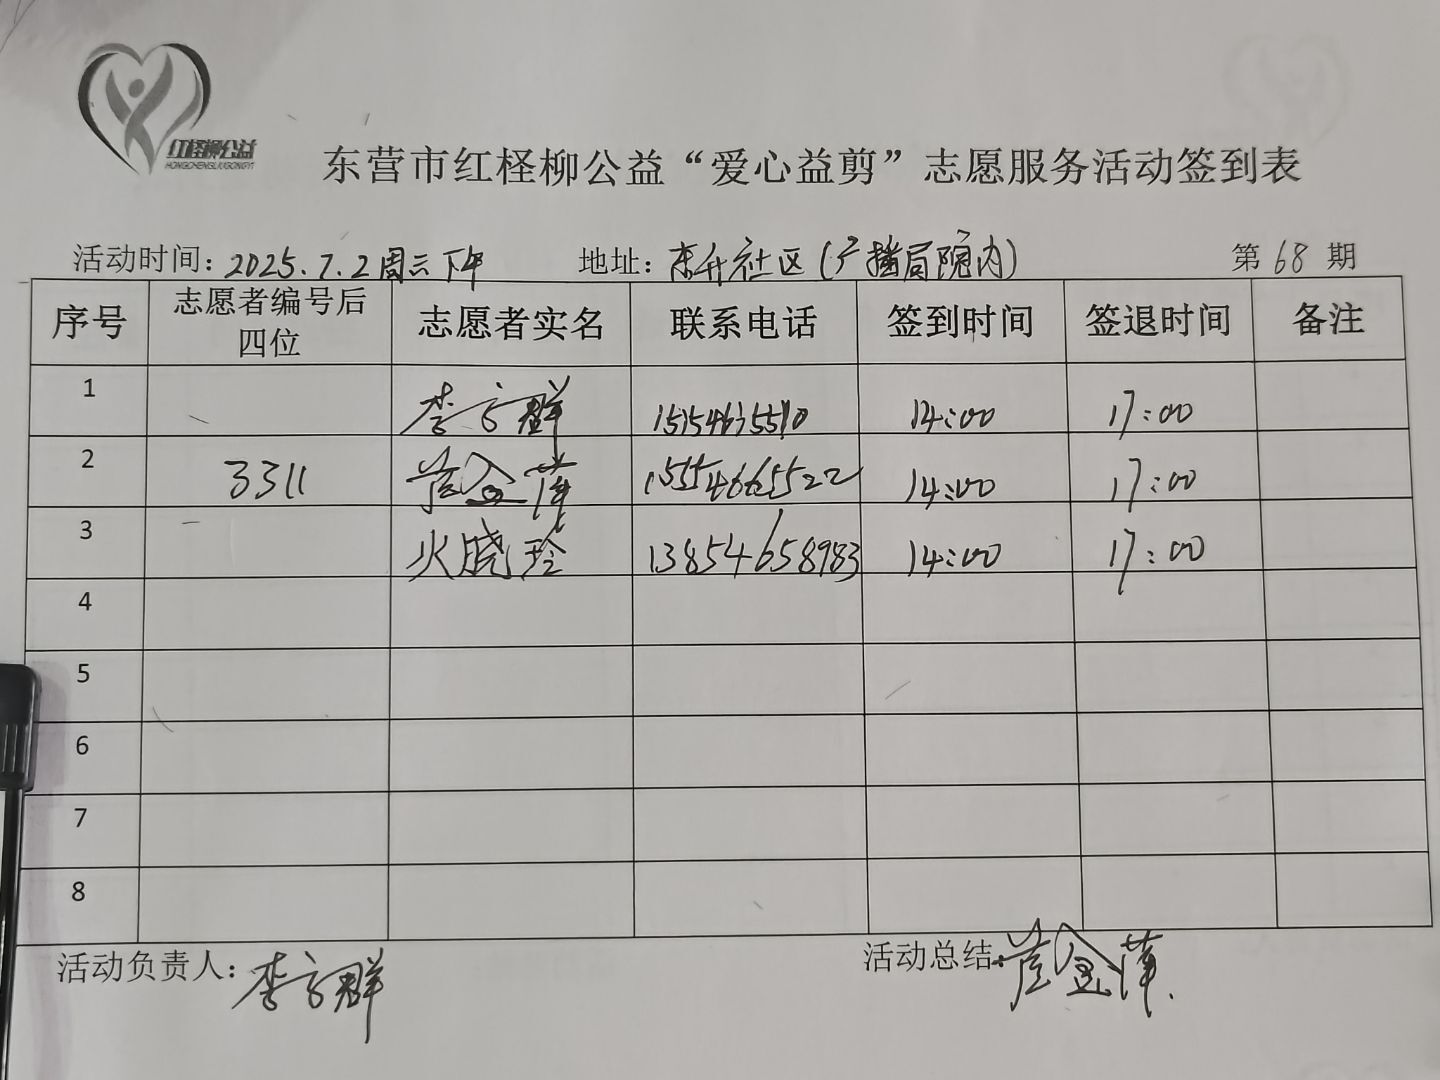 红柽柳公益
HONGCHENGLIUGONGYI
东营市红柽柳公益“爱心益剪”志愿服务活动签到表
活动时间：2025.7.2周三下午 地址：东升社区(广播局院内) 第68期
序号 志愿者编号后四位 志愿者实名 联系电话 签到时间 签退时间 备注
1 李方群 14:00 17:00
2 3311 15554665522 14:00 17:00
3 火晓玲 13854658983 14:00 17:00
4
5
6
7
8
活动负责人：李方群 活动总结：